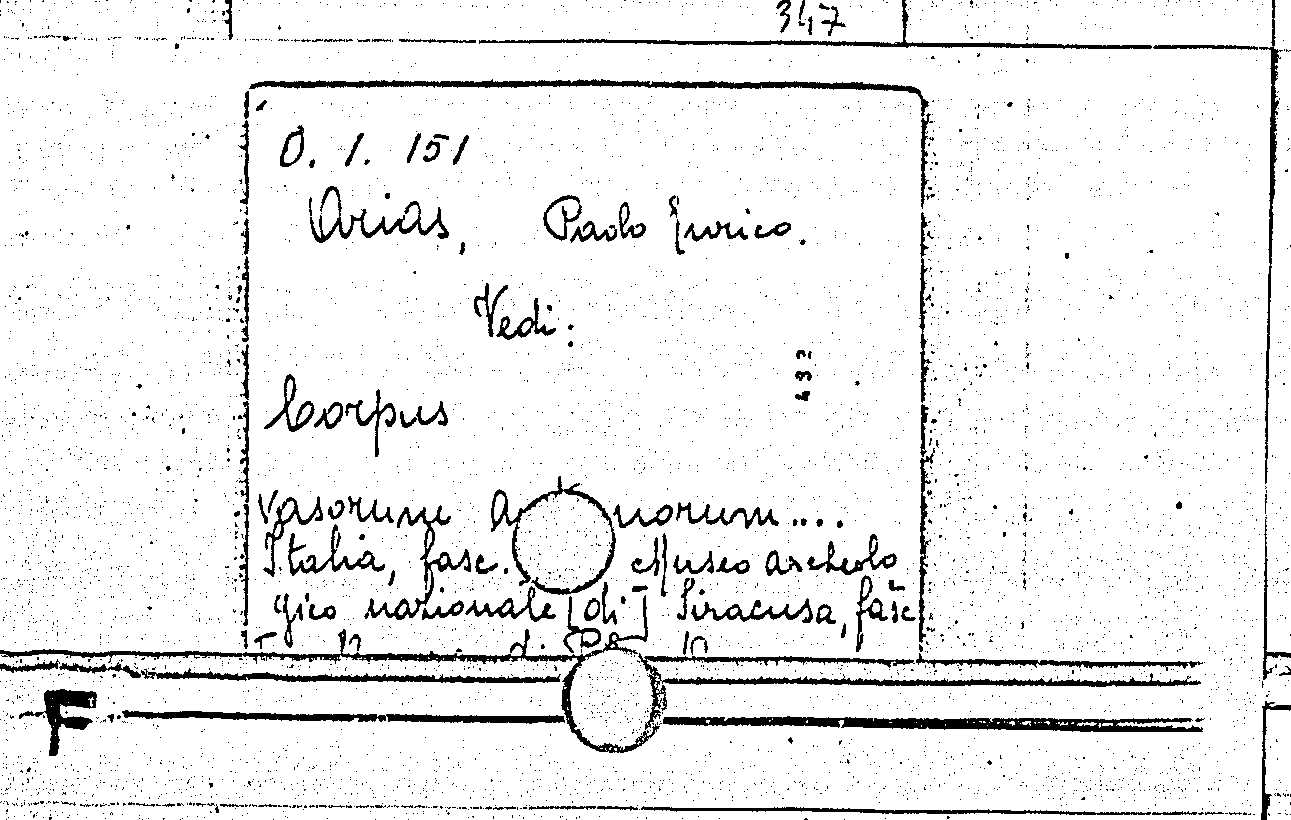 347
O. 1. 151
Arias, Paolo Enrico.
Vedi:
437
Corpus
Vasorum A norum....
Italia, fasc. Museo archeolo
gico nazionale [di] Siracusa, fasc
F